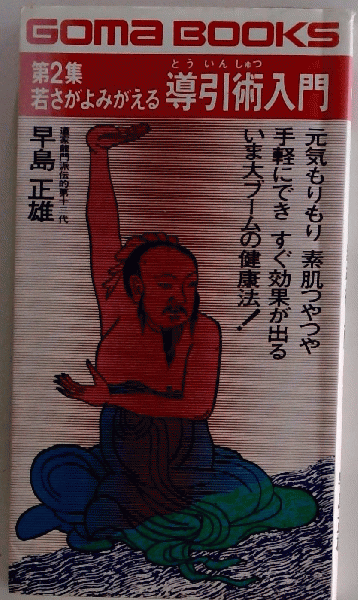 GOMA BOOKS
第2集
若さがよみがえる
とういんしゅつ
導引術入門
元気もりもり 素肌つやつや
手軽にでき すぐ効果が出る
いま大ブームの健康法!
早島正雄